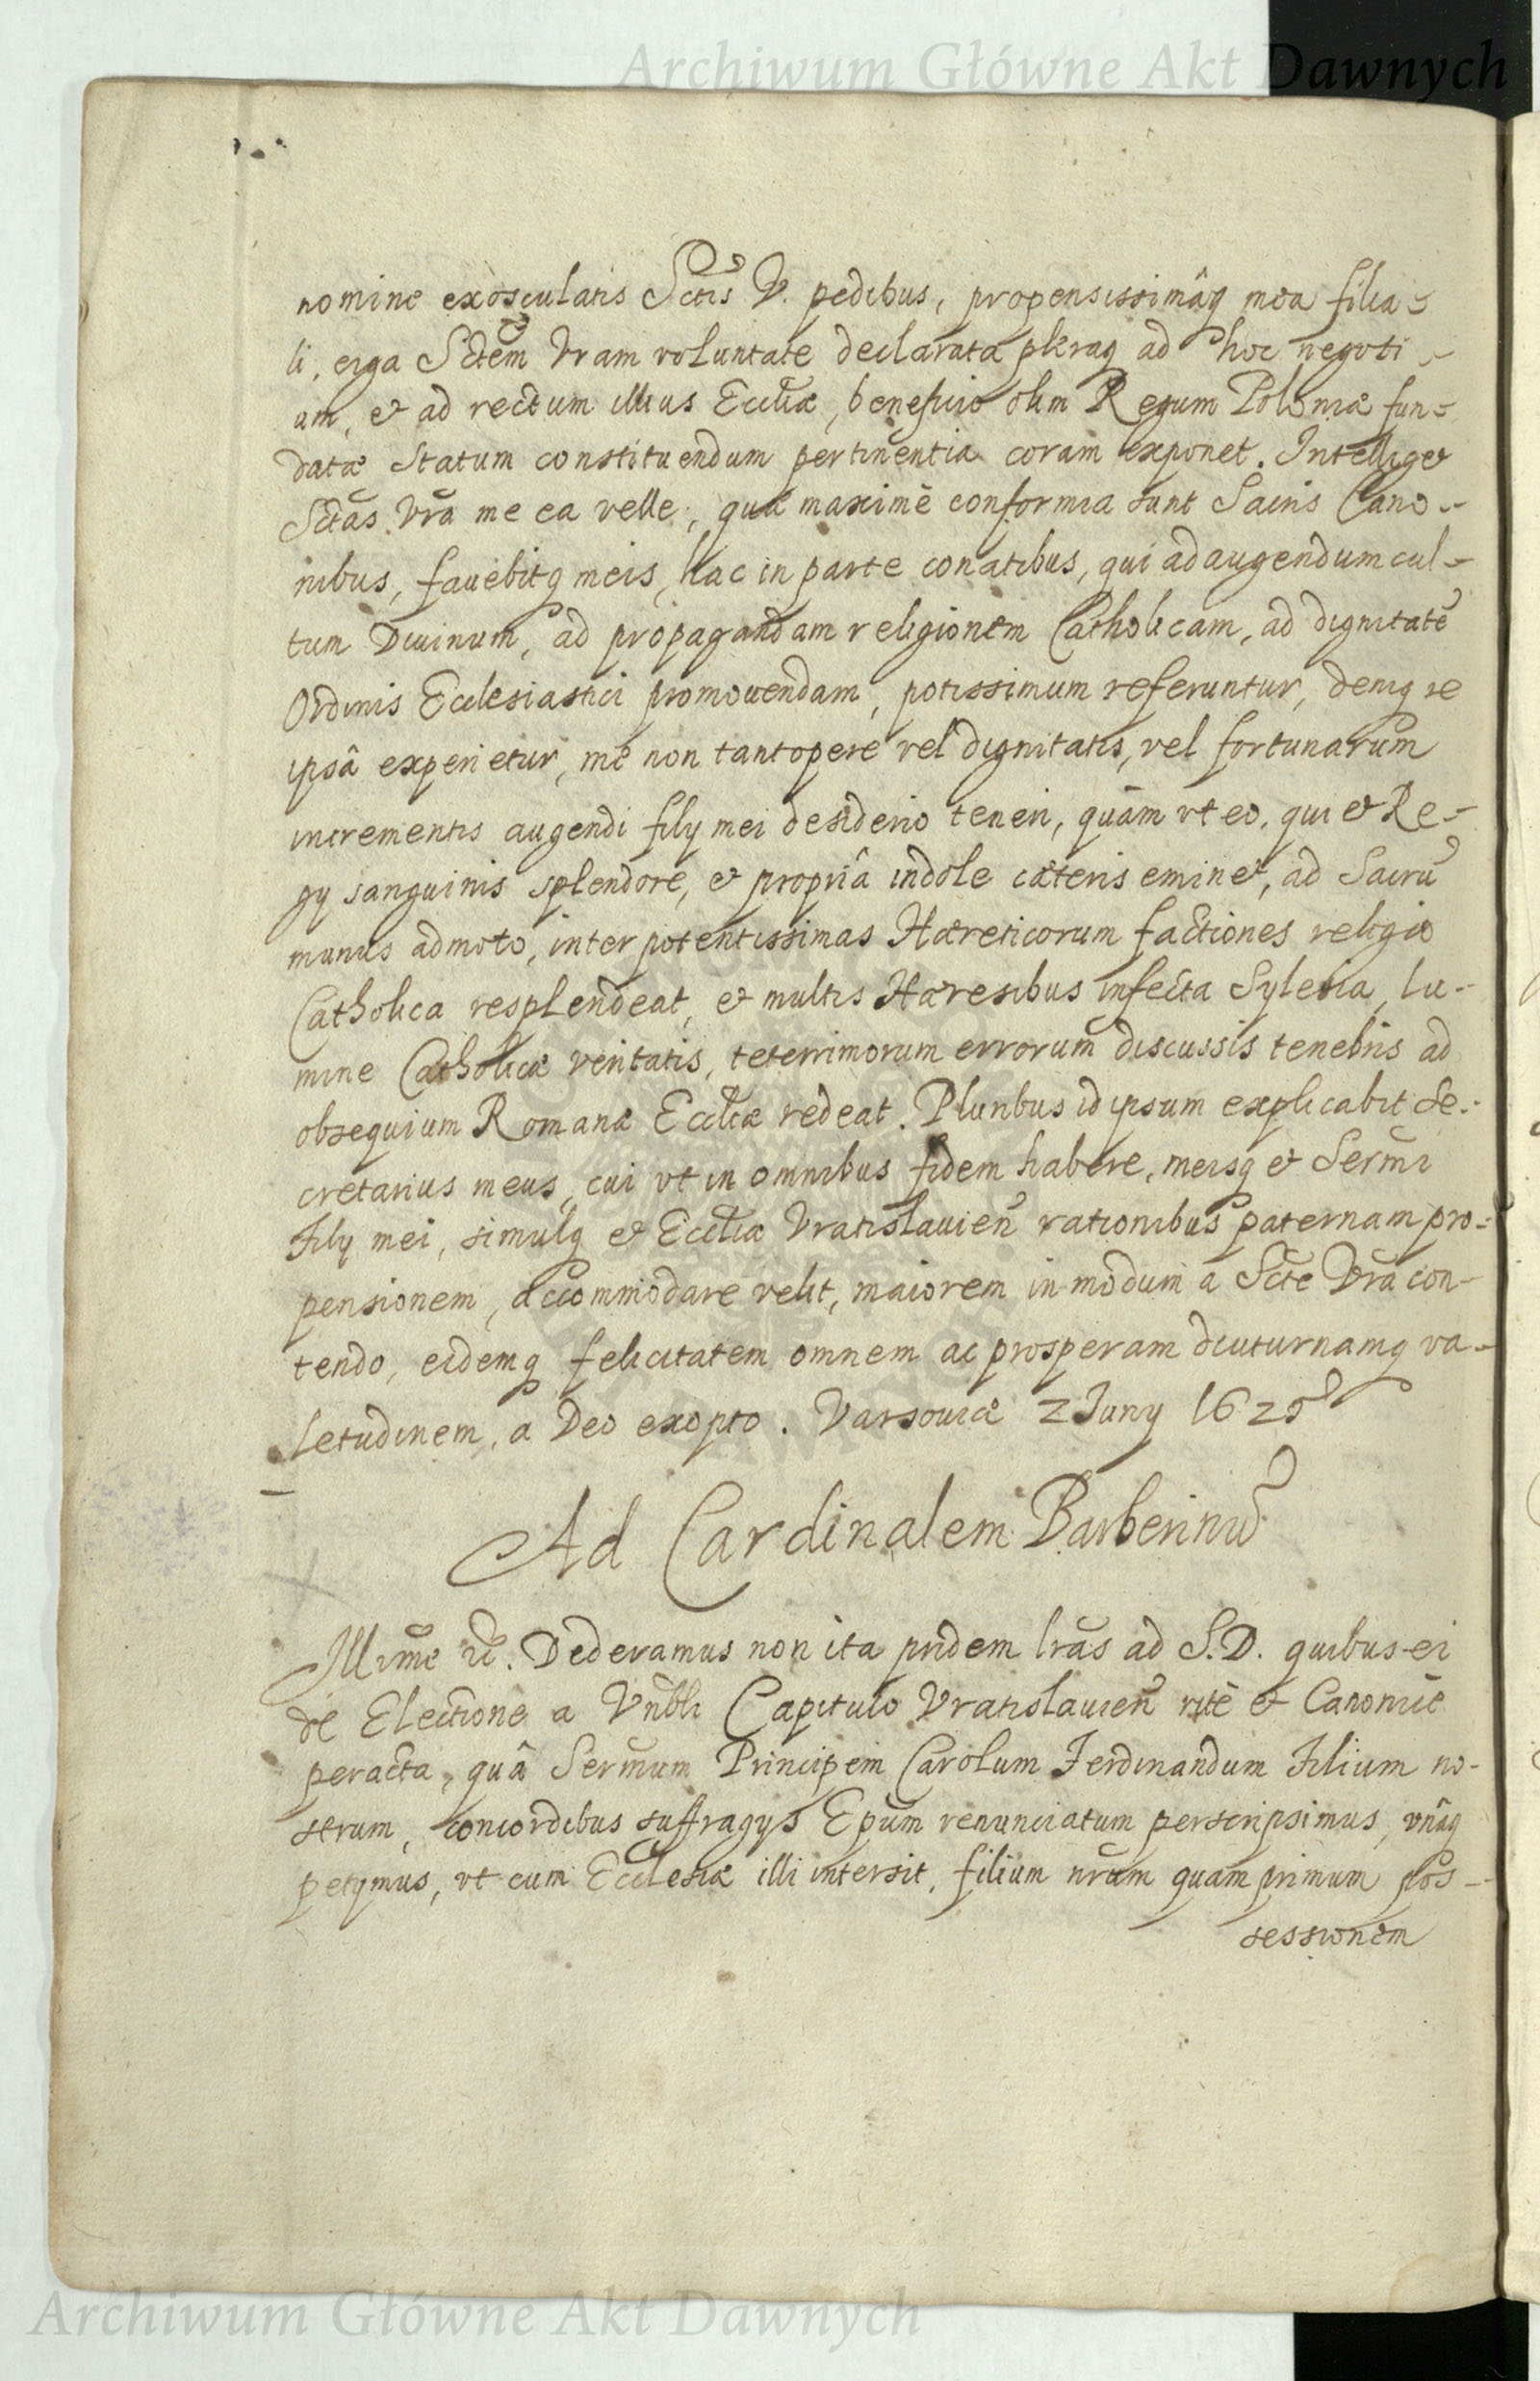 Archiwum Główne Akt Dawnych
nomine exosculatis Sctis V. pedibus, propensissimâq mea filia-
li, erga Sctem Vram voluntate declarata pleraq ad hoc negoti-
um, et ad rectum illius Eccliæ, beneficio olim Regum Poloniæ fun-
datæ statum constituendum pertinentia coram exponet. Intelliget
Sctas Vra me ea velle, quæ maximè conformia sunt Sacris Cano-
nibus, favebitq meis, hac in parte conatibus, qui ad augendum cul-
tum Divinum, ad propagandam religionem Catholicam, ad dignitatē
Ordinis Ecclesiastici promovendam, potissimum referuntur, deniq re
ipsâ experietur, me non tantopere vel dignitatis, vel fortunarum
incrementis augendi filÿ mei desiderio teneri, quàm vt eo, qui et Re-
gÿ sanguinis splendore, et propriâ indole cæteris eminet, ad Sacrū
munus admoto, inter potentissimas Hæreticorum factiones religio
Catholica resplendeat, et multis Hæresibus infecta Sylesia, lu-
mine Catholicæ veritatis, teterrimorum errorum discussis tenebris ad
obsequium Romanæ Eccliæ redeat. Pluribus id ipsum explicabit Se-
cretarius meus, cui vt in omnibus fidem habere, meisq et Sermi
Filÿ mei, simulq et Eccliæ Vratislavien rationibus paternam pro-
pensionem, accommodare velit, maiorem in modum a Scte Vra con-
tendo, eidemq felicitatem omnem ac prosperam diuturnamq va-
letudinem, a Deo exopto. Varsoviæ 2 Juny 1625
Ad Cardinalem Barberinū
Illrme etc. Dederamus non ita pridem lras ad S.D. quibus ei
de Electione a Vnbli Capitulo Vratislavien ritè et Canonicè
peracta, quâ Sermum Principem Carolum Ferdinandum Filium no-
strum, concordibus suffragÿs Epum renunciatum perscripsimus, vnâq
petÿmus, vt cum Ecclesiæ illi intersit, filium nrum quam primum pos-
sessionem
Archiwum Główne Akt Dawnych